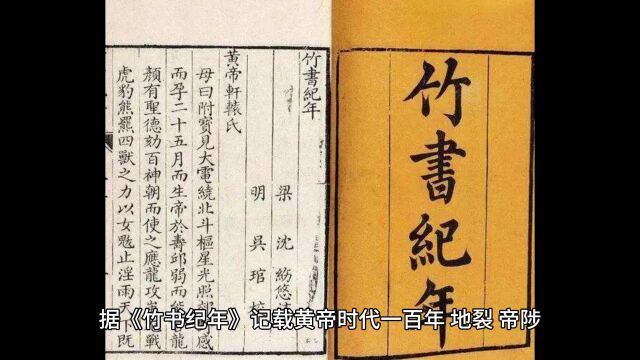 竹書紀年
竹書紀年
梁 沈約
明 吳琯校
黃帝軒轅氏
母曰附寶見大電繞北斗樞星光照感
而孕二十五月而生帝於壽邱弱而能
顏有聖德劾百神朝而使之應龍攻
虎豹熊羆四獸之力以女魃止淫雨天下既
据《竹书纪年》记载黄帝时代一百年 地裂 帝陟